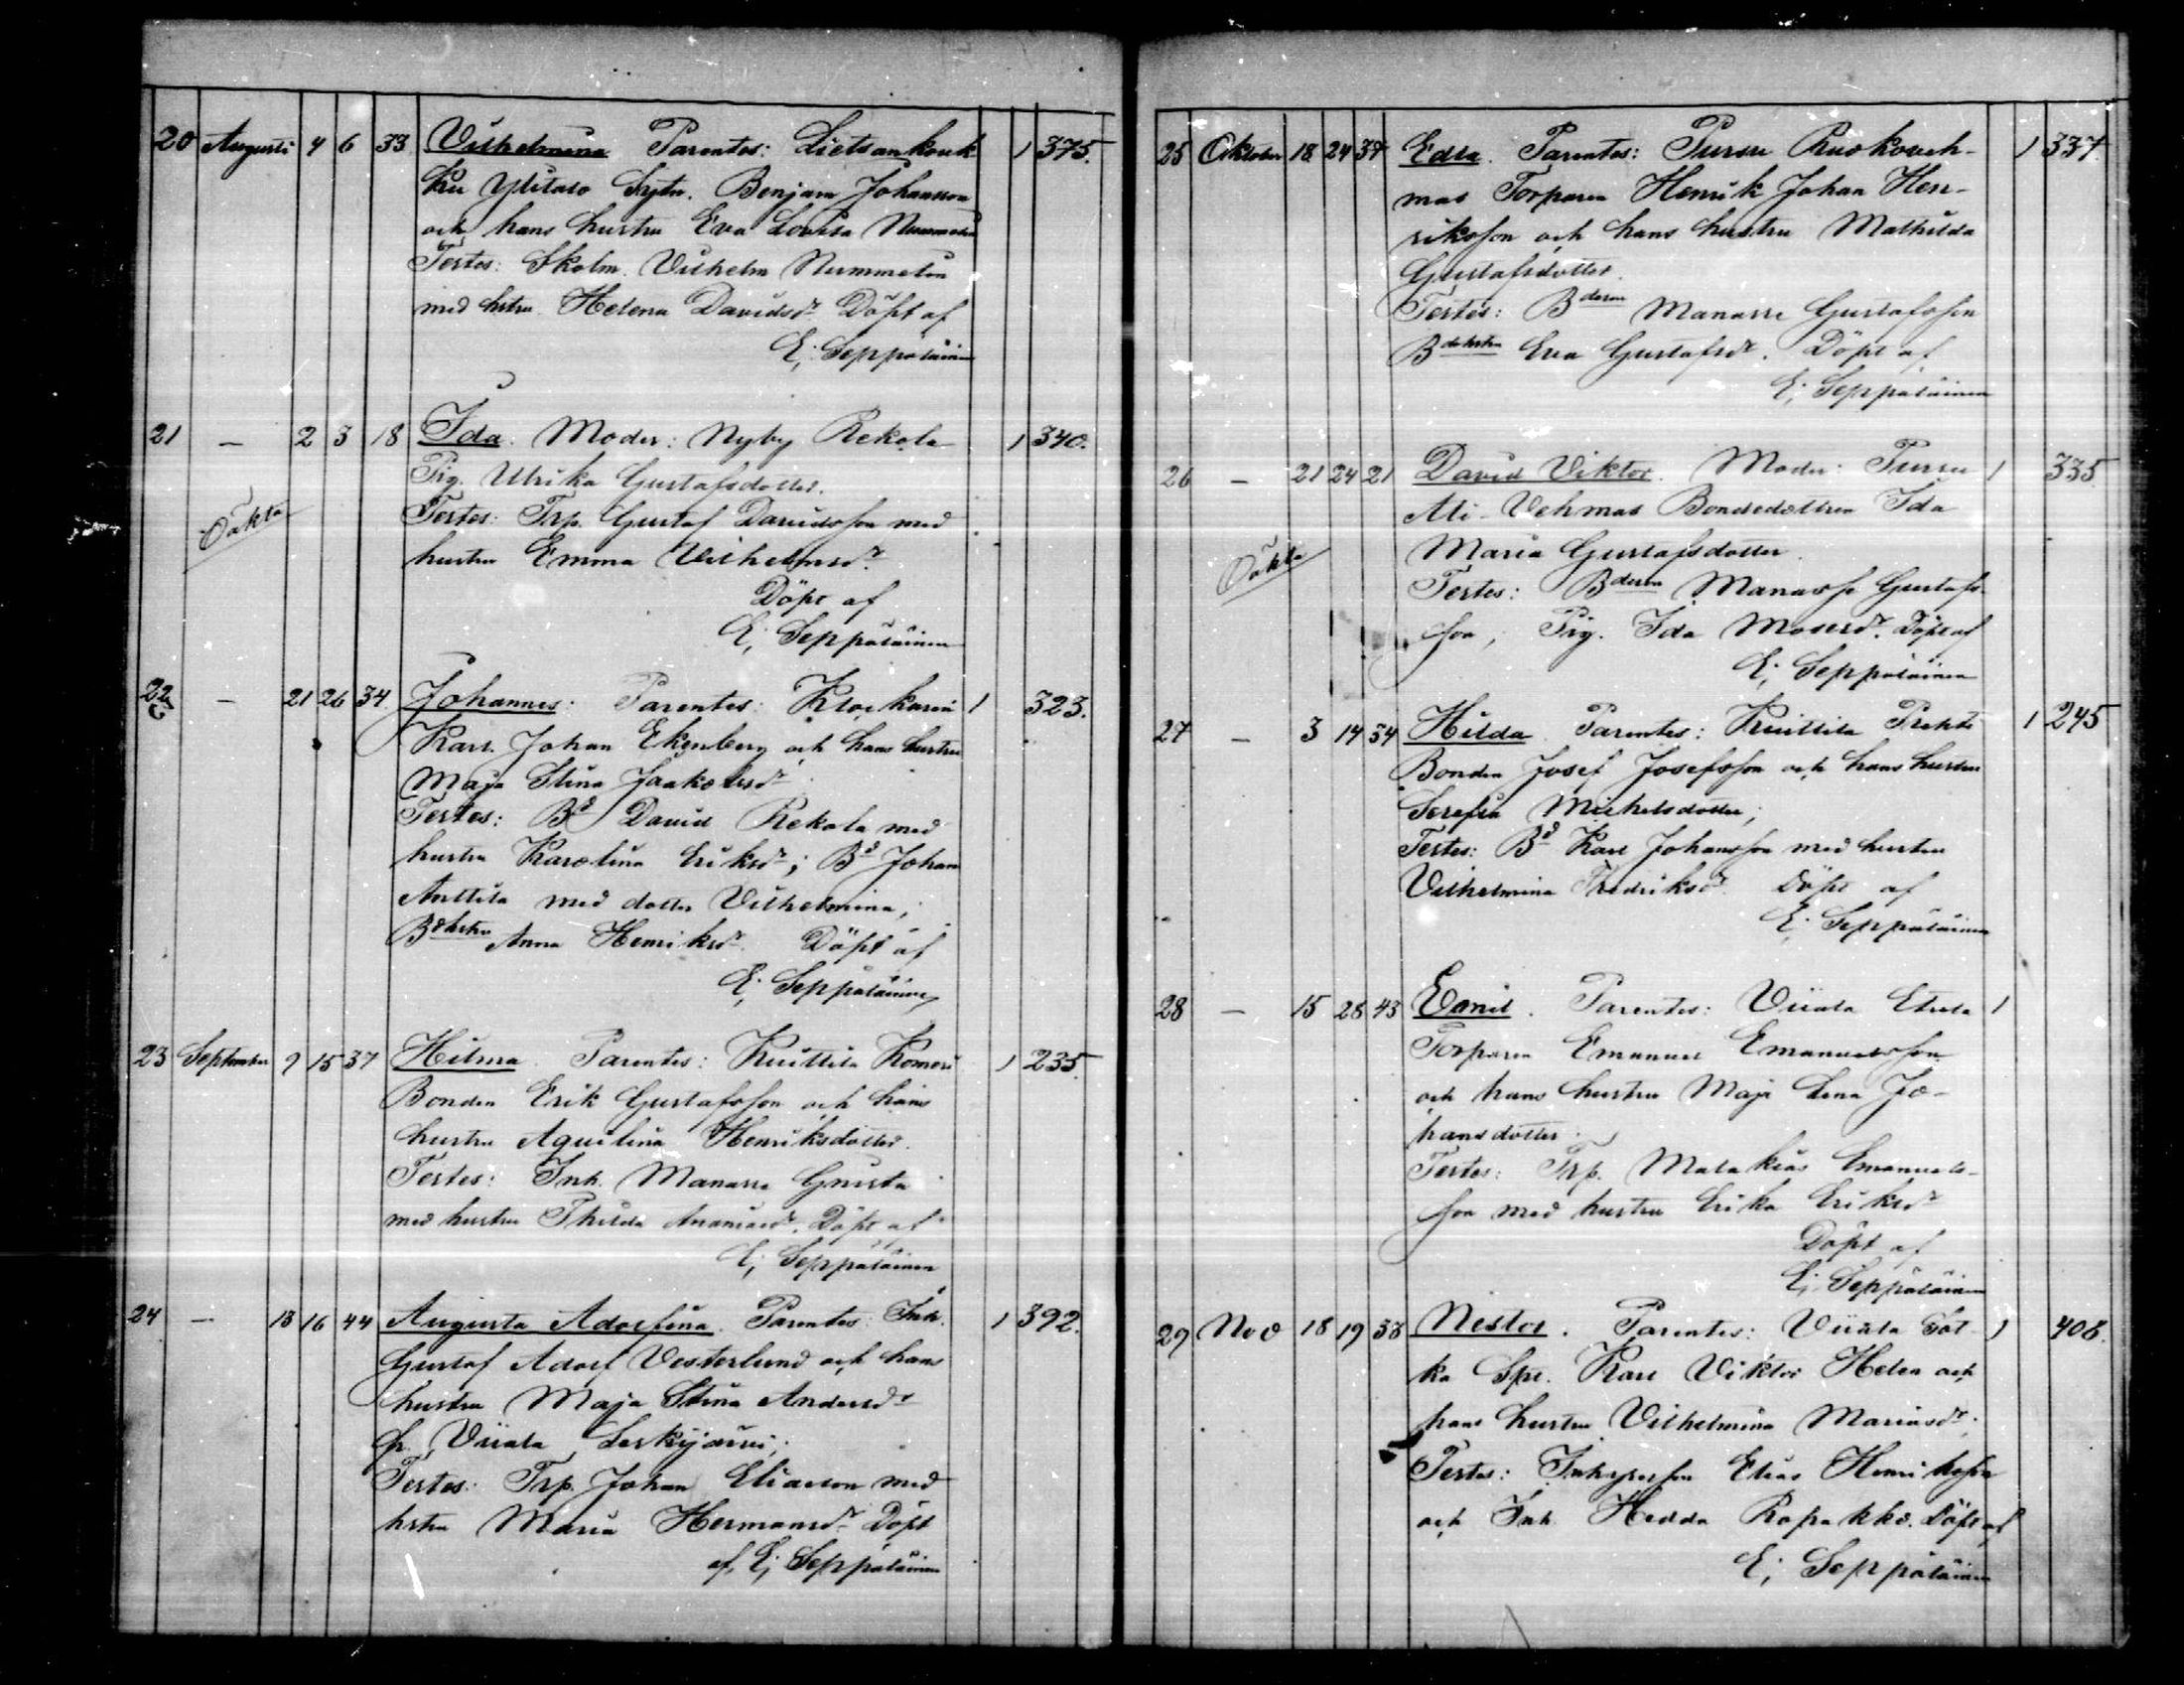 20 Augusti 4 6 33 Vilhelmina Parentes: Lietsankouk 1 375.
ku Ylitalo Benjam Johansson
och hans hustru Eva Lovisa
Testes: Skolm. Vilhelm Nummelin
med hstru Helena Davidsdr Döpt af
E; Seppäläinen
21 – 2 3 18 Ida. Moder: Nyby Rekola 1 340.
Pig. Ulrika Gustafsdotter.
Oäkta
Testes: Trp. Gustaf Davidsson med
hustru Emma Vilhelmsdr.
Döpt af
E; Seppäläinen
22 – 21 26 34 Johannes: Parentes: Klockaren 1 323.
Karl Johan Ekenberg och hans hustru
Maja Stina Jaakolasdr
Testes: Bd David Rekola med
hustru Karolina Eriksdr; Bd Johan
Anttila med dotter Vilhelmina;
Bdehstru Anna Henriksdr. Döpt af
E; Seppäläinen
23 September 9 15 37 Hilma. Parentes: Kuittila Komeri 1 235.
Bonden Erik Gustafsson och hans
hustru Aquilina Henriksdotter.
Testes: Inh. Manasse
med hustru Thilda Ananiasdr. Döpt af
E; Seppäläinen
24 – 13 16 44 Augusta Adolfina. Parentes: Inh. 1 392.
Gustaf Adolf Vesterlund och hans
hustru Maja Stina Andersdr
fr. Viiala Leskijärvi;
Testes: Trp. Johan Eliasson med
hstru Maria Hermansdr Döpt
af E; Seppäläinen
25 Oktober 18 24 37 Edla. Parentes: Pursu Ruskoveh- 1 337.
mas Torparen Henrik Johan Hen-
riksson och hans hustru Mathilda
Gustafsdotter.
Testes: Bdesson Manasse Gustafsson
Bdehstru Eva Gustafsdr. Döpt af
E; Seppäläinen
26 – 21 24 21 David Viktor. Moder: Pursu 1 335
Ali-Vehmas Bondedottren Ida
Maria Gustafsdotter.
Oäkta
Testes: Bdesson Manasse Gustafs-
son, Pig. Ida Mosesdr. Döpt af
E; Seppäläinen
27 – 3 14 34 Hilda. Parentes: Kuittila Prehti 1 245
Bonden Josef Josefsson och hans hustru
Serefia Mickelsdotter;
Testes: Bd Karl Johansson med hustru
Vilhelmina Fredriksdr. Döpt af
E; Seppäläinen
28 – 15 28 43 Evanil. Parentes: Viiala Etula 1
Torparen Emanuel Emanuelsson
och hans hustru Maja Lena Jo-
hansdotter.
Testes: Trp. Malakias Emanuels-
son med hustru Erika Eriksdr
Döpt af
E; Seppäläinen
29 Nov 18 19 38 Nestor. Parentes: Viiala Sot- 1 408.
ka Spr. Karl Viktor Helen och
hans hustru Vilhelmina Mariasdr.
Testes: Elias Henriksson
och Inh. Hedda Ropakko. Döpt af
E; Seppäläinen